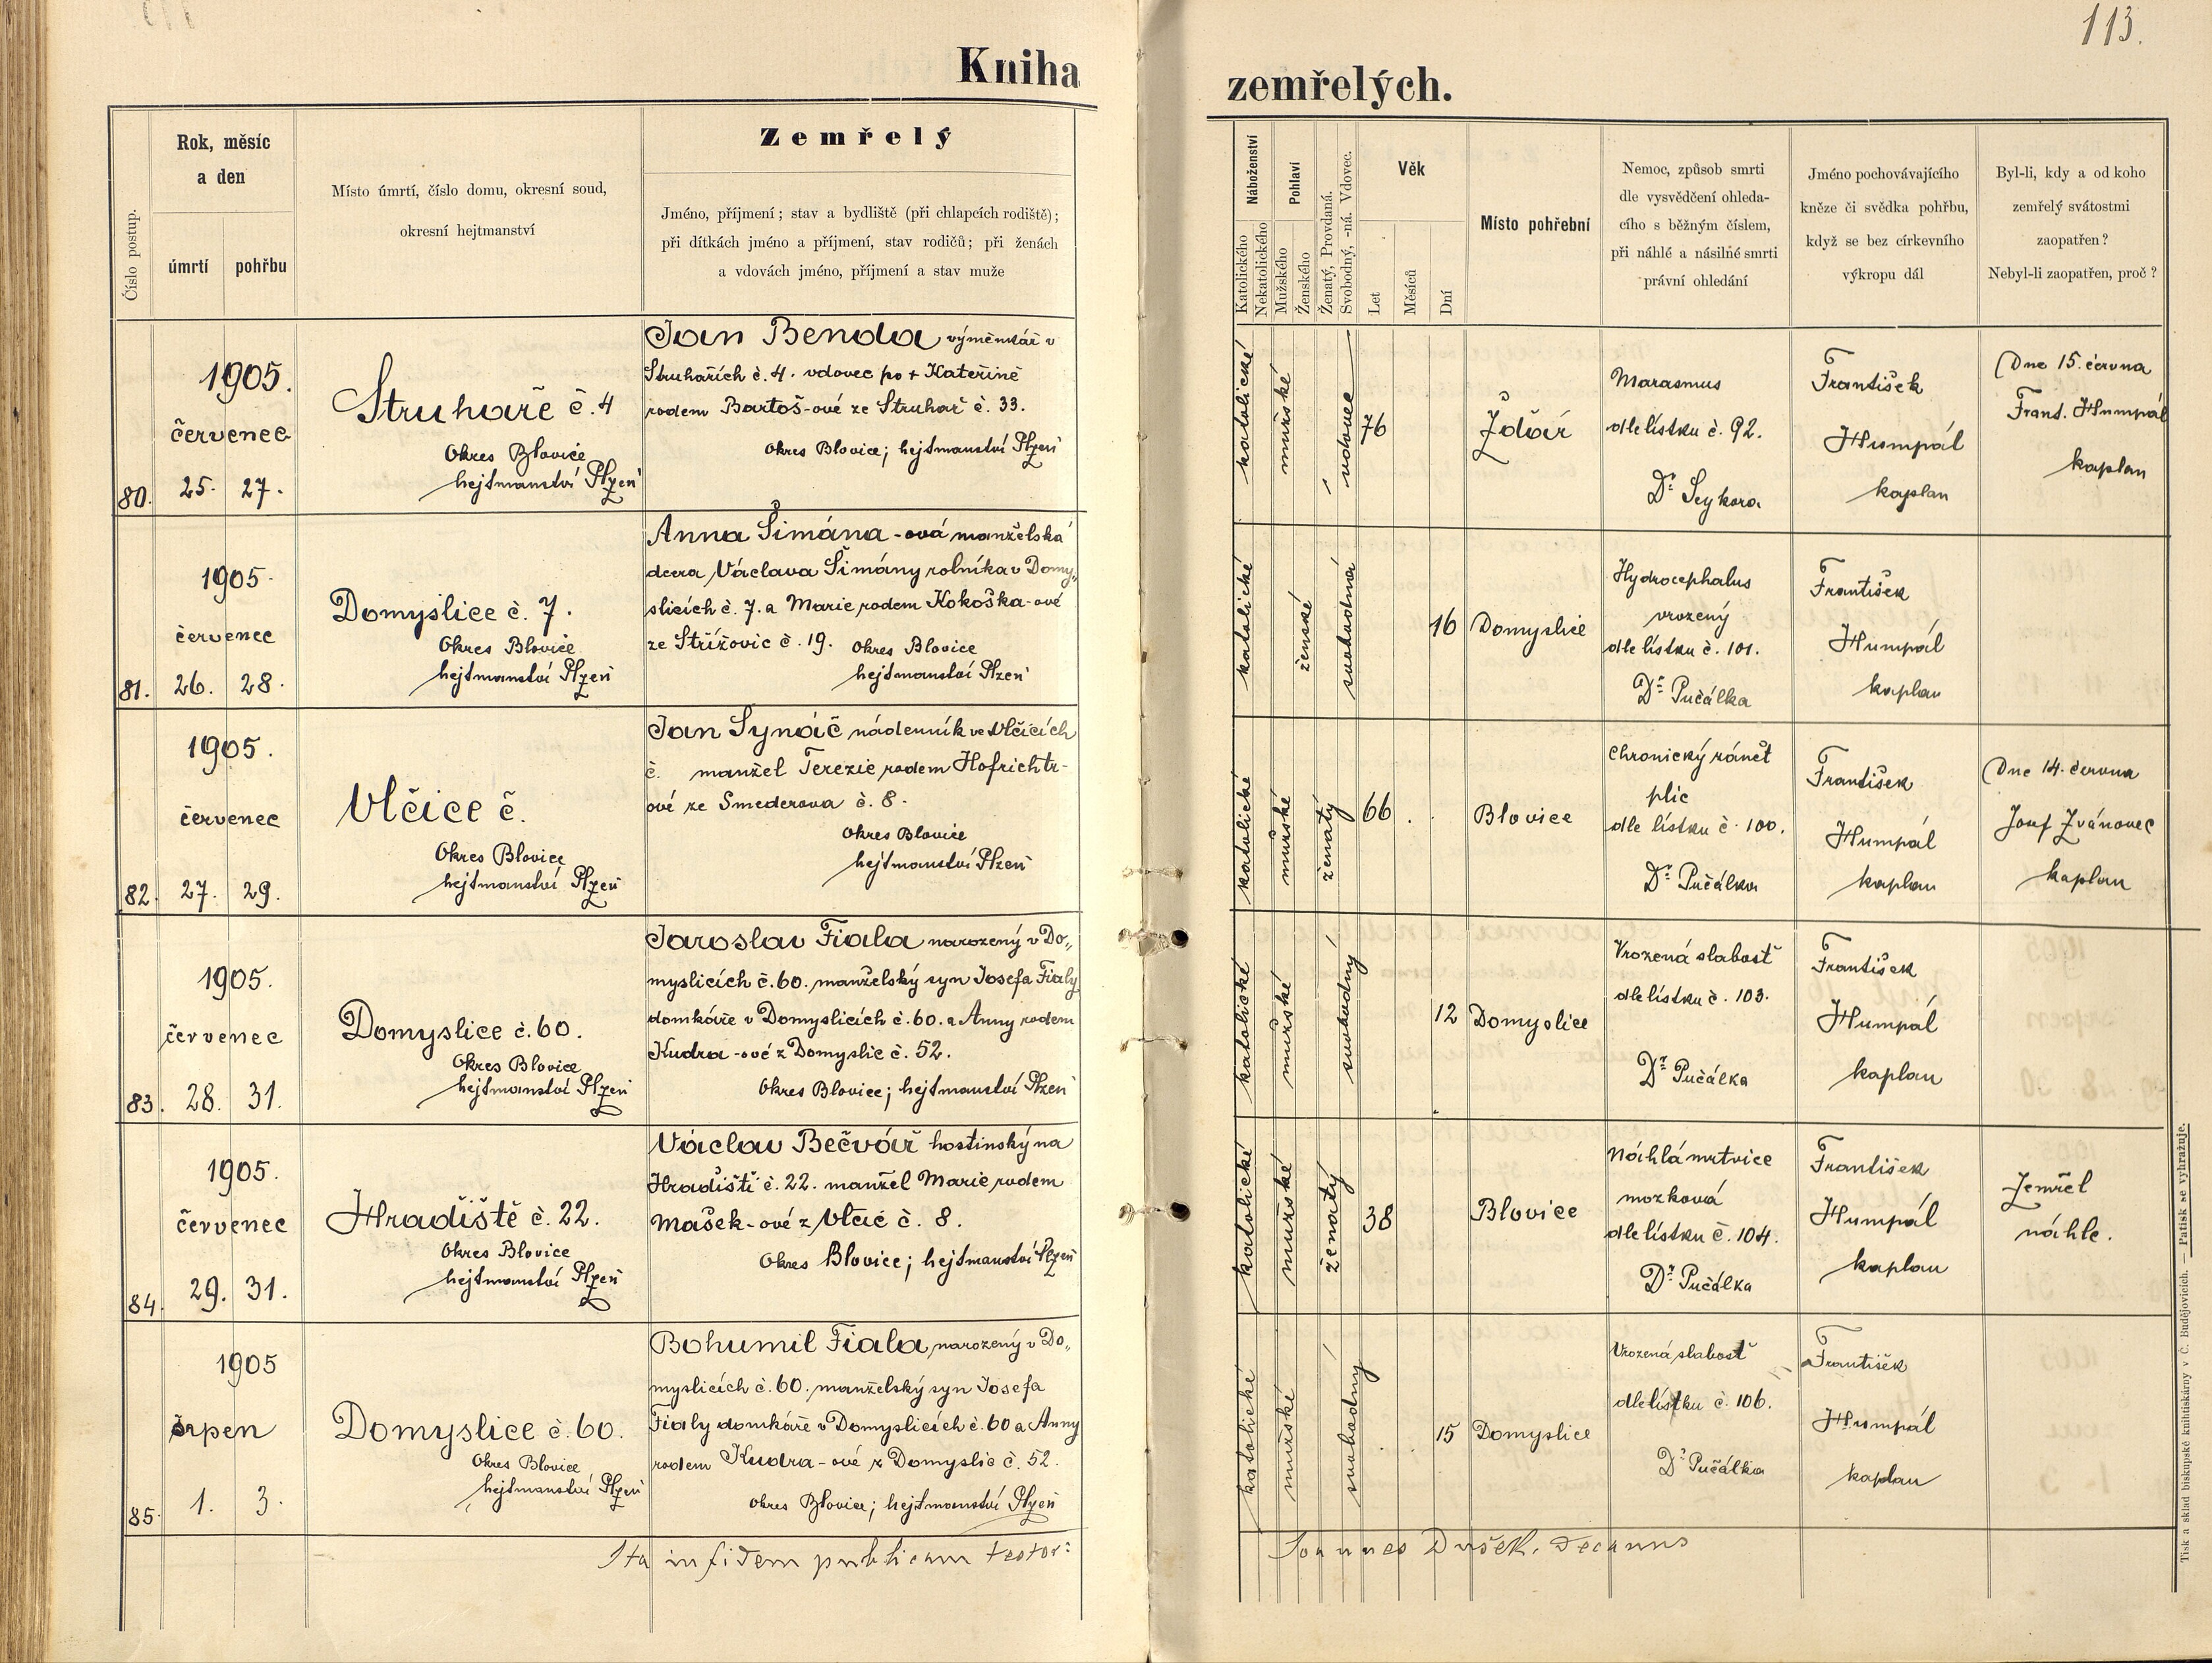 113.
Kniha zemřelých.
Číslo postup.
Rok, měsíc
a den
úmrtí
pohřbu
Místo úmrtí, číslo domu, okresní soud,
okresní hejtmanství
Zemřelý
Jméno, příjmení; stav a bydliště (při chlapcích rodiště);
při dítkách jméno a příjmení, stav rodičů; při ženách
a vdovách jméno, příjmení a stav muže
Náboženství
Katolického
Nekatolického
Pohlaví
Mužského
Ženského
Ženatý, Provdaná.
Svobodný, -ná. Vdovec.
Věk
Let
Měsíců
Dní
Místo pohřební
Nemoc, způsob smrti
dle vysvědčení ohleda-
cího s běžným číslem,
při náhlé a násilné smrti
právní ohledání
Jméno pochovávajícího
kněze či svědka pohřbu,
když se bez církevního
výkropu dál
Byl-li, kdy a od koho
zemřelý svátostmi
zaopatřen?
Nebyl-li zaopatřen, proč?
80.
1905.
červenec
25. 27.
Struhaře č. 4
Okres Blovice
hejtmanství Plzeň
Jan Benda výměnkář v
Struhařích č. 4. vdovec po + Kateřině
rodem Bartoš-ové ze Struhař č. 33.
Okres Blovice; hejtmanství Plzeň
katolické
mužské
vdovec
76
Ždár
Marasmus
dle lístku č. 92.
Dr. Seykora
František
Humpál
kaplan
Dne 15. června
Frant. Humpál
kaplan
81.
1905.
červenec
26. 28.
Domyslice č. 7.
Okres Blovice
hejtmanství Plzeň
Anna Šimána-ová manželská
dcera Václava Šimány rolníka v Domy„
slicích č. 7. a Marie rodem Kokoška-ové
ze Střížovic č. 19. Okres Blovice
hejtmanství Plzeň
katolické
ženské
svobodná
16
Domyslice
Hydrocephalus
vrozený
dle lístku č. 101.
Dr. Pučálka
František
Humpál
kaplan
82.
1905.
červenec
27. 29.
Vlčice č.
Okres Blovice
hejtmanství Plzeň
Jan Synáč nádenník ve Vlčicích
č. manžel Terezie rodem Hofrichtr-
ové ze Smederova č. 8.
Okres Blovice
hejtmanství Plzeň
katolické
mužské
ženatý
66
Blovice
Chronický zánět
plic
dle lístku č. 100.
Dr. Pučálka
František
Humpál
kaplan
Dne 14. června
Josef Zvánovec
kaplan
83.
1905.
červenec
28. 31.
Domyslice č. 60.
Okres Blovice
hejtmanství Plzeň
Jaroslav Fiala narozený v Do„
myslicích č. 60. manželský syn Josefa Fialy
domkáře v Domyslicích č. 60. a Anny rodem
Kudra-ové z Domyslic č. 52.
Okres Blovice; hejtmanství Plzeň
katolické
mužské
svobodný
12
Domyslice
Vrozená slabosť
dle lístku č. 103.
Dr. Pučálka
František
Humpál
kaplan
84.
1905.
červenec
29. 31.
Hradiště č. 22.
Okres Blovice
hejtmanství Plzeň
Václav Bečvář hostinský na
Hradišti č. 22. manžel Marie rodem
Mašek-ové z Vlčic č. 8.
Okres Blovice; hejtmanství Plzeň
katolické
mužské
ženatý
38
Blovice
Náhlá mrtvice
mozková
dle lístku č. 104.
Dr. Pučálka
František
Humpál
kaplan
Zemřel
náhle.
85.
1905
srpen
1. 3.
Domyslice č. 60.
Okres Blovice
hejtmanství Plzeň
Bohumil Fiala, narozený v Do„
myslicích č. 60. manželský syn Josefa
Fialy domkáře v Domyslicích č. 60 a Anny
rodem Kudra-ové z Domyslic č. 52.
Okres Blovice; hejtmanství Plzeň
katolické
mužské
svobodný
15
Domyslice
Vrozená slabosť
dle lístku č. 106.
Dr. Pučálka
František
Humpál
kaplan
Ita in fidem publicam testor: Joannes Dušek, decanus
Tisk a sklad biskupské knihtiskárny v Č. Budějovicích. — Patisk se vyhražuje.